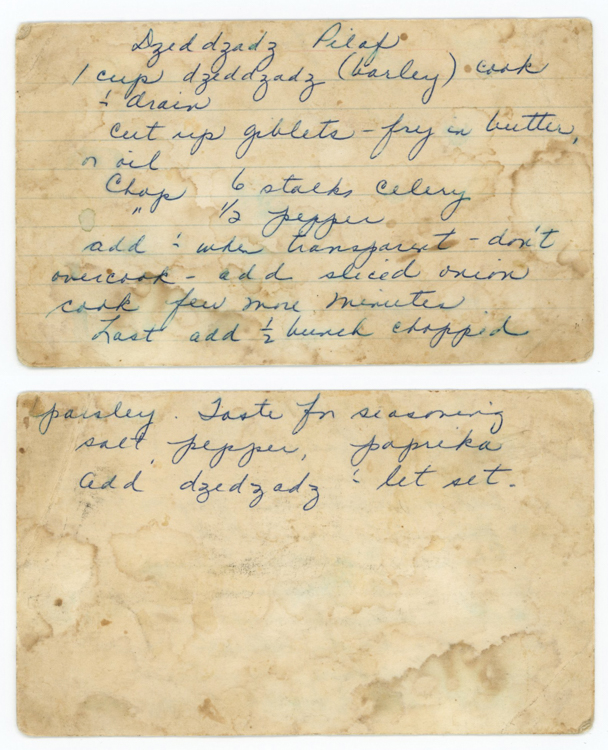 Dzeddzadz Pilaf
1 cup dzeddzadz (barley) cook
& drain
Cut up giblets - fry in butter,
or oil
Chop 6 stalks celery
" 1/2 pepper
add & when transparent - don't
overcook - add sliced onion
cook few more minutes
Last add 1/2 bunch chopped
parsley. Taste for seasoning
salt, pepper, paprika
add dzedzadz & let set.